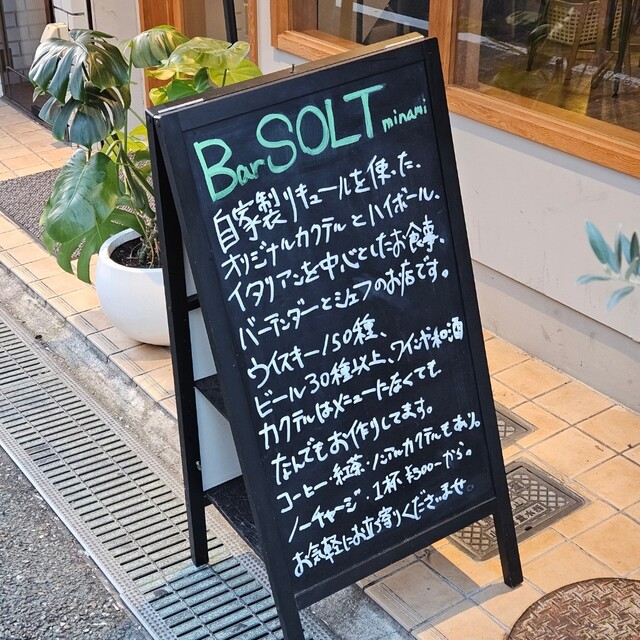 Bar SOLT minami
自家製リキュールを使った、
オリジナルカクテルとハイボール、
イタリアンを中心としたお食事、
バーテンダーとシェフのお店です。
ウイスキー150種、
ビール30種以上、ワインや和酒
カクテルはメニューになくても
なんでもお作りしてます。
コーヒー・紅茶・ノンアルカクテルもあり。
ノーチャージ・1杯¥500-から。
お気軽にお立ち寄りくださいませ。